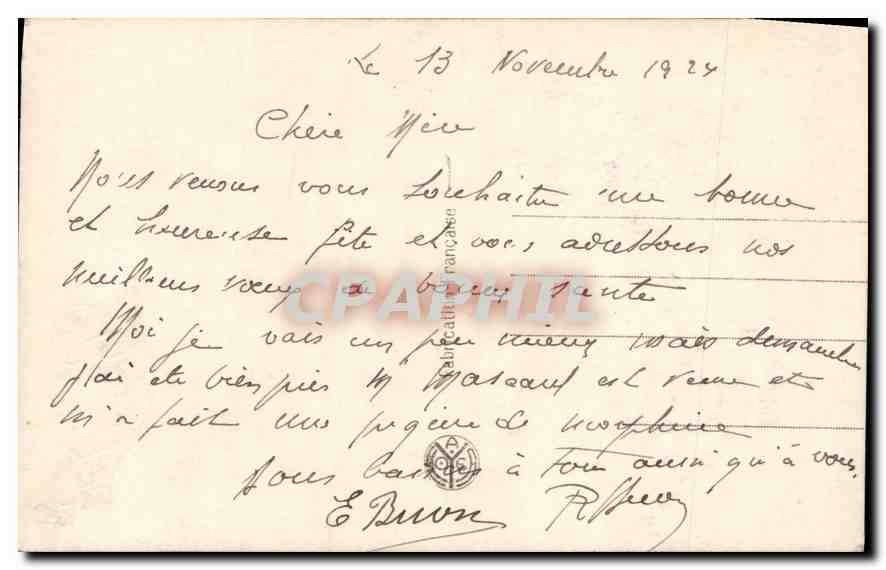 Le 13 Novembre 1924
Chère Mère
Nous venons vous souhaiter une bonne
et heureuse fête et vous adressons nos
meilleurs voeux de bonne santé
Moi je vais un peu mieux mais dimanche
j'ai été bien pris M est venu et
m'a fait une piqure de morphine
Bons baisers à tous ainsi qu'à vous.
E Buvon
Fabrication Française
CPAPHIL